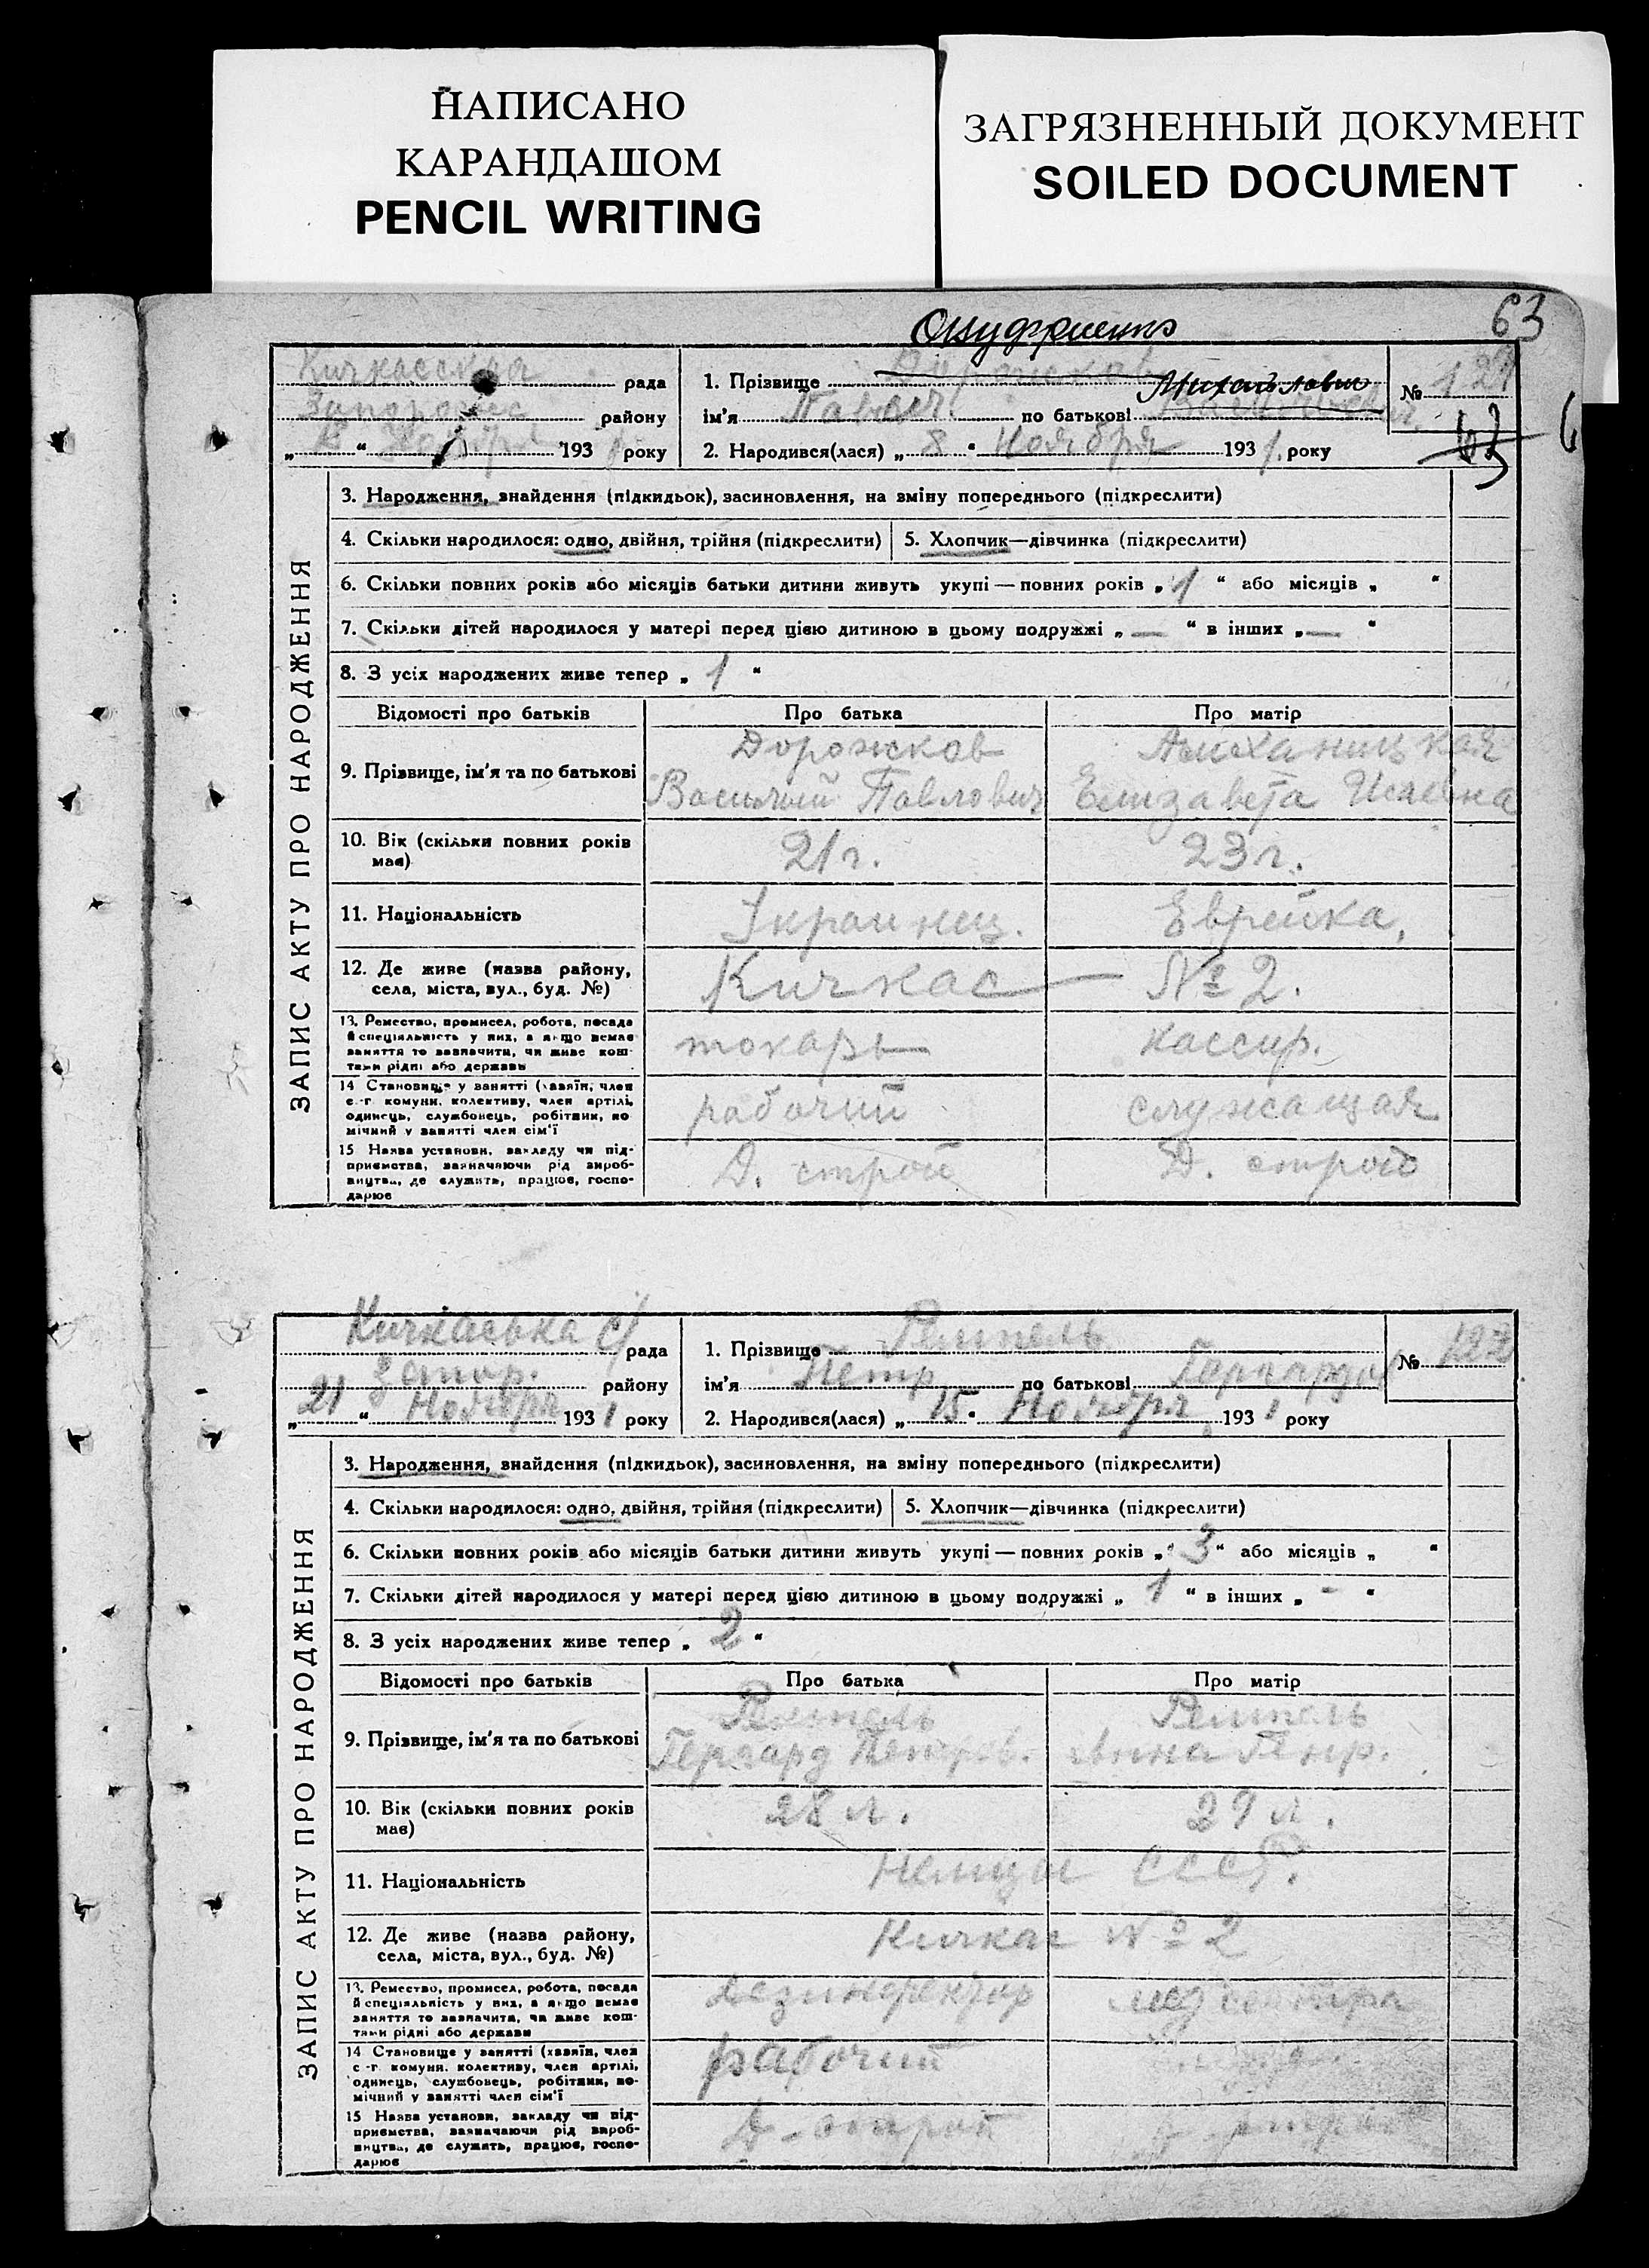 НАПИСАНО
КАРАНДАШОМ
PENCIL WRITING
ЗАГРЯЗНЕННЫЙ ДОКУМЕНТ
SOILED DOCUMENT
63
рада
Запорожс району
193 року
1. Прізвище Дорожков
ім'я Павел по батькові Михайлович
2. Народився(лася) „ 8 “ Ноября 1931 року
№ 121
63
ЗАПИС АКТУ ПРО НАРОДЖЕННЯ
3. Народження, знайдення (підкидьок), засиновлення, на зміну попереднього (підкреслити)
4. Скільки народилося: одно, двійня, трійня (підкреслити)
5. Хлопчик—дівчинка (підкреслити)
6. Скільки повних років або місяців батьки дитини живуть укупі — повних років „ 1 “ або місяців „ “
7. Скільки дітей народилося у матері перед цією дитиною в цьому подружжі „ — “ в інших „ — “
8. З усіх народжених живе тепер „ 1 “
Відомості про батьків Про батька Про матір
9. Прізвище, ім'я та по батькові
Дорожков
Василий Павлович
Елизавета
10. Вік (скільки повних років має) 21 г. 23 г.
11. Національність Украинец. Еврейка,
12. Де живе (назва району, села, міста, вул., буд. №) Кичкас — № 2.
13. Ремество, промисел, робота, посада й спеціяльність у них, а якщо немає заняття то зазначити, чи живе коштами рідні або держави
токарь кассир.
14 Становище у занятті (хазяїн, член с.-г. комуни, колективу, член артілі, одинець, службовець, робітник, помічний у занятті член сім'ї
рабочий служащая
15 Назва установи, закладу чи підприємства, зазначаючи рід виробництва, де служить, працює, господарює
Д. строй Д. строй
Кичкаська с/ рада
Запор. району
„ 21 “ Ноября 1931 року
1. Прізвище Ремпель
ім'я Петр по батькові Гергардов
2. Народився(лася) „ 15. Ноября 1931 року
№ 122
ЗАПИС АКТУ ПРО НАРОДЖЕННЯ
3. Народження, знайдення (підкидьок), засиновлення, на зміну попереднього (підкреслити)
4. Скільки народилося: одно, двійня, трійня (підкреслити)
5. Хлопчик—дівчинка (підкреслити)
6. Скільки повних років або місяців батьки дитини живуть укупі — повних років „ 3 “ або місяців „ “
7. Скільки дітей народилося у матері перед цією дитиною в цьому подружжі „ 1 “ в інших „ - “
8. З усіх народжених живе тепер „ 2 “
Відомості про батьків Про батька Про матір
9. Прізвище, ім'я та по батькові
Ремпель Ремпель
Гергард Петров. Анна Генр.
10. Вік (скільки повних років має) 28 л. 29 л.
11. Національність Немцы СССР.
12. Де живе (назва району, села, міста, вул., буд. №) Кичкас № 2
13. Ремество, промисел, робота, посада й спеціяльність у них, а якщо немає заняття то зазначити, чи живе коштами рідні або держави
дезинфектор медсестра
14 Становище у занятті (хазяїн, член с.-г. комуни, колективу, член артілі, одинець, службовець, робітник, помічний у занятті член сім'ї
рабочий
15 Назва установи, закладу чи підприємства, зазначаючи рід виробництва, де служить, працює, господарює
Д-строй